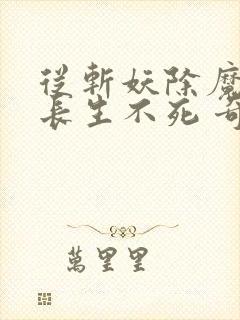 從斬妖除魔
長生不死 奇
萬里里